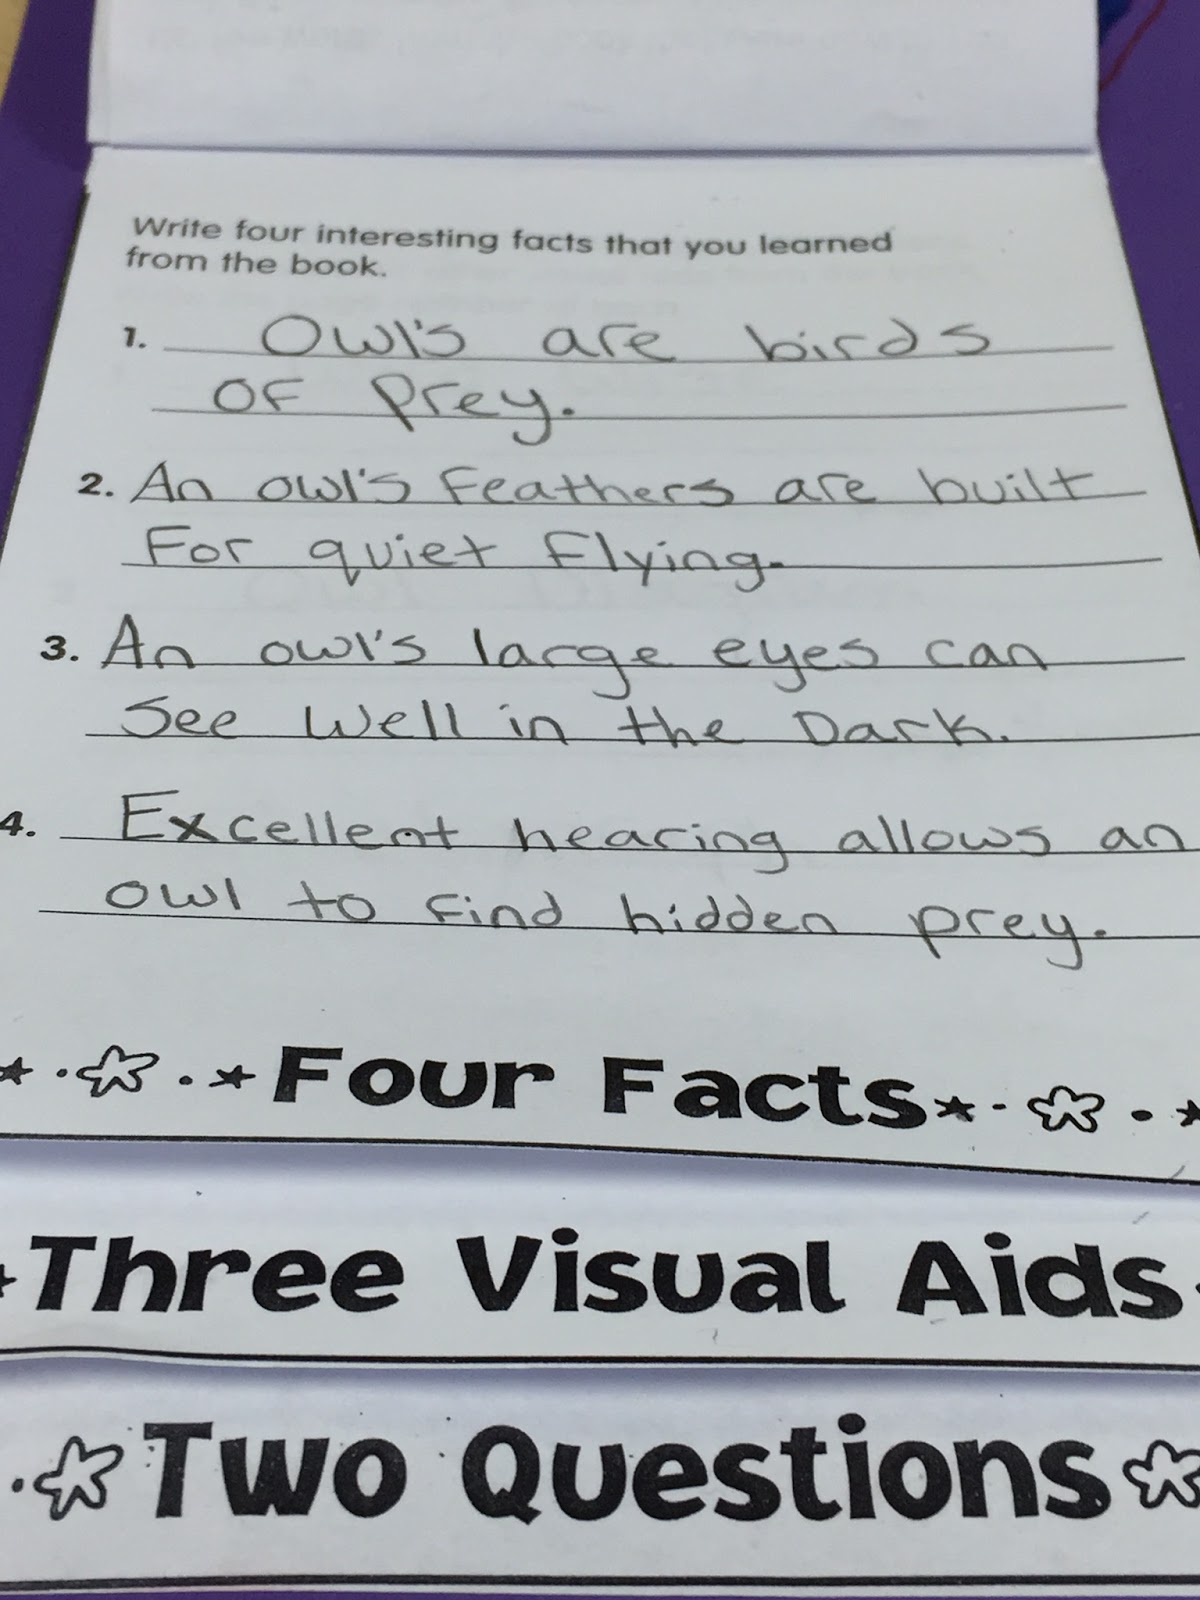 Write four interesting facts that you learned
from the book.
1. Owl's are birds
OF Prey.
2. An owl's Feathers are built
For quiet Flying.
3. An owl's large eyes can
See Well in the Dark.
4. Excellent hearing allows an
owl to Find hidden prey.
Four Facts
Three Visual Aids
Two Questions